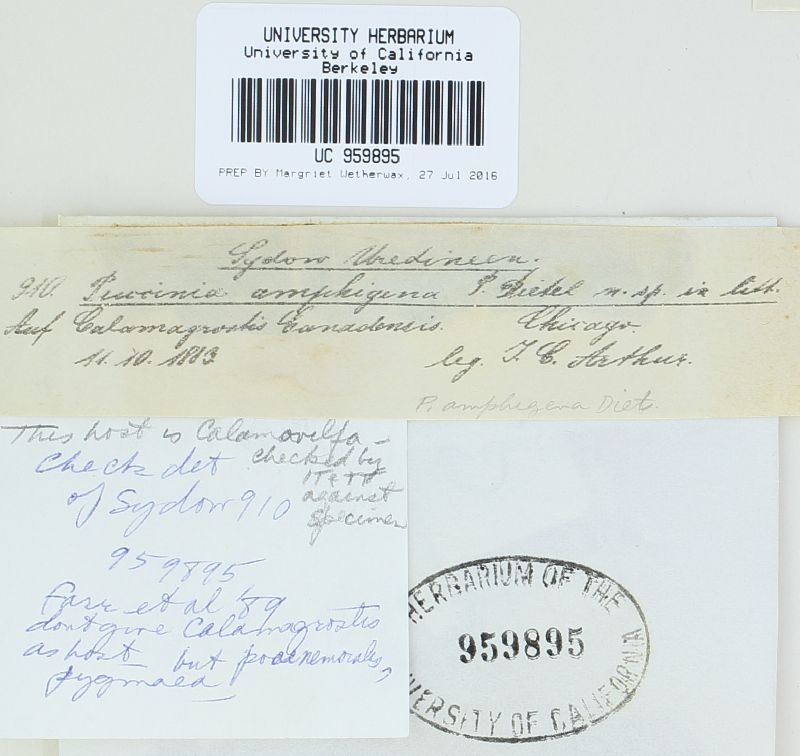 UNIVERSITY HERBARIUM
University of California
Berkeley
UC 959895
PREP BY Margriet Wetherwax, 27 Jul 2016
Sydow Uredineen.
910. Puccinia amphigena P. Dietel n. sp. in litt.
Auf Calamagrostis Canadensis. Chicago.
11. 10. 1893 leg. J. C. Arthur.
P. amphigena Diet.
This host is Calamovilfa -
checked by
against
specimen
Check det
of Sydow 910
959895
Farr et al '89
dont give Calamagrostis
as host but poa nemoralis,
pygmaea
HERBARIUM OF THE
959895
VERSITY OF CALIFORNIA